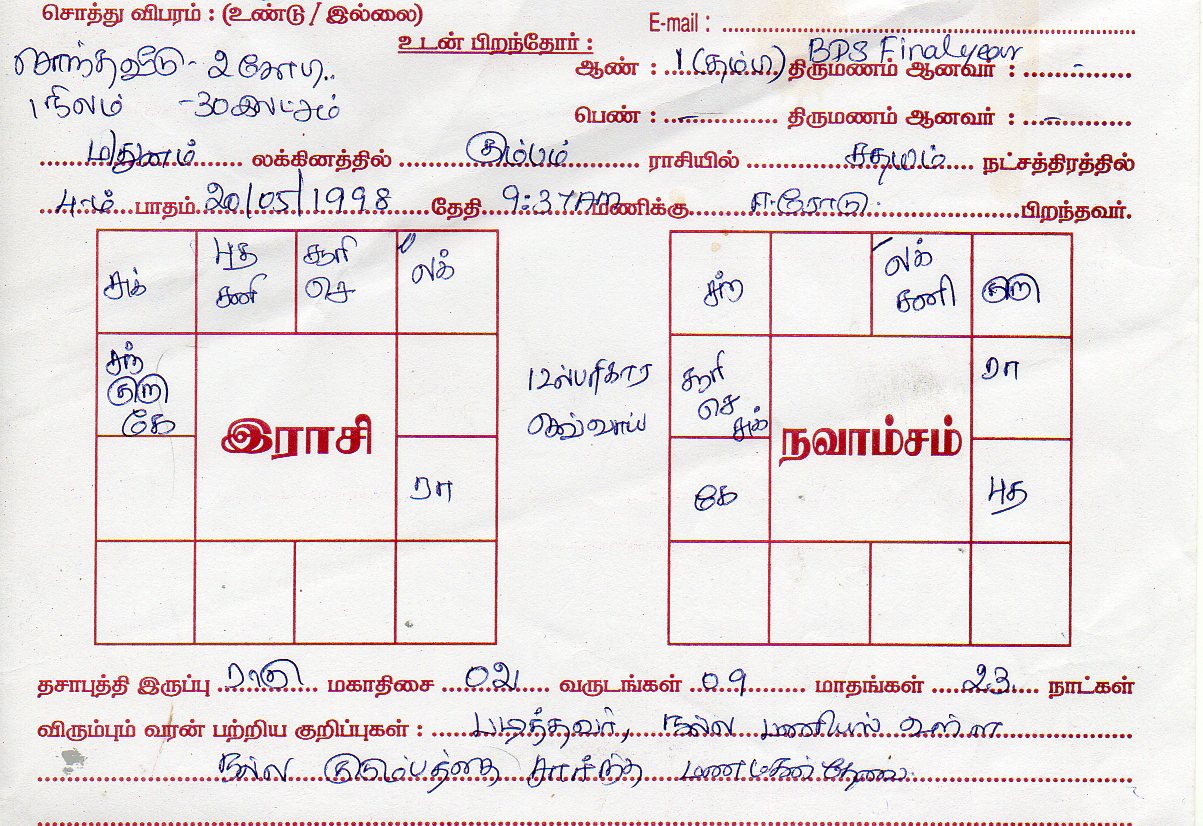 சொத்து விபரம் : (உண்டு / இல்லை)
E-mail :
உடன் பிறந்தோர் :
சொந்த வீடு - 2 கோடி.
ஆண் : 1 (தம்பி) BDS Final year திருமணம் ஆனவர் : -
1 நிலம் - 30 இலட்சம்
பெண் : - திருமணம் ஆனவர் : -
மிதுனம் லக்கினத்தில் கும்பம் ராசியில் சதயம் நட்சத்திரத்தில்
4-ம் பாதம் 20/05/1998 தேதி 9:37AM மணிக்கு ஈரோடு பிறந்தவர்.
சுக் புத சூரி லக்
சனி செ
சந் குரு கே
இராசி
ரா
12ல் பரிகார
செவ்வாய்
சந் லக் குரு
சனி
சூரி செ சுக் ரா
நவாம்சம்
கே புத
தசாபுத்தி இருப்பு ராகு மகாதிசை 02 வருடங்கள் 09 மாதங்கள் 23 நாட்கள்
விரும்பும் வரன் பற்றிய குறிப்புகள் : படித்தவர், நல்ல பணியில் உள்ள
நல்ல குடும்பத்தை சார்ந்த மணமகன் தேவை.